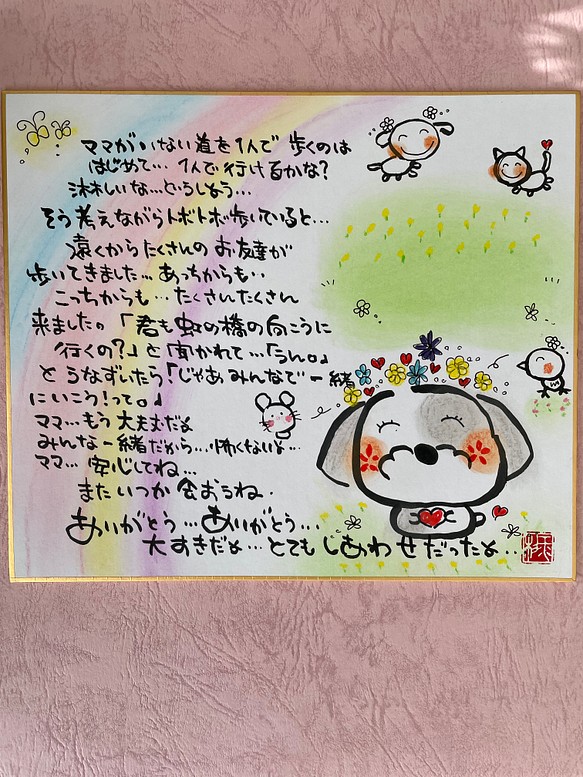 ママがいない道を1人で歩くのは
はじめて… 1人で行けるかな?
淋しいな…どうしよう…
そう考えながらトボトボ歩いていると…
遠くからたくさんのお友達が
歩いてきました…あっちからも‥
こっちからも…たくさんたくさん
来ました。「君も虹の橋の向こうに
行くの?」と聞かれて…「うん。」
とうなずいたら「じゃあみんなで一緒
にいこう!って。」
ママ…もう大丈夫だよ
みんな一緒だから…怖くないよ…
ママ…安心してね…
またいつか会おうね.
ありがとう…ありがとう…
大すきだよ…とてもしあわせだったよ…